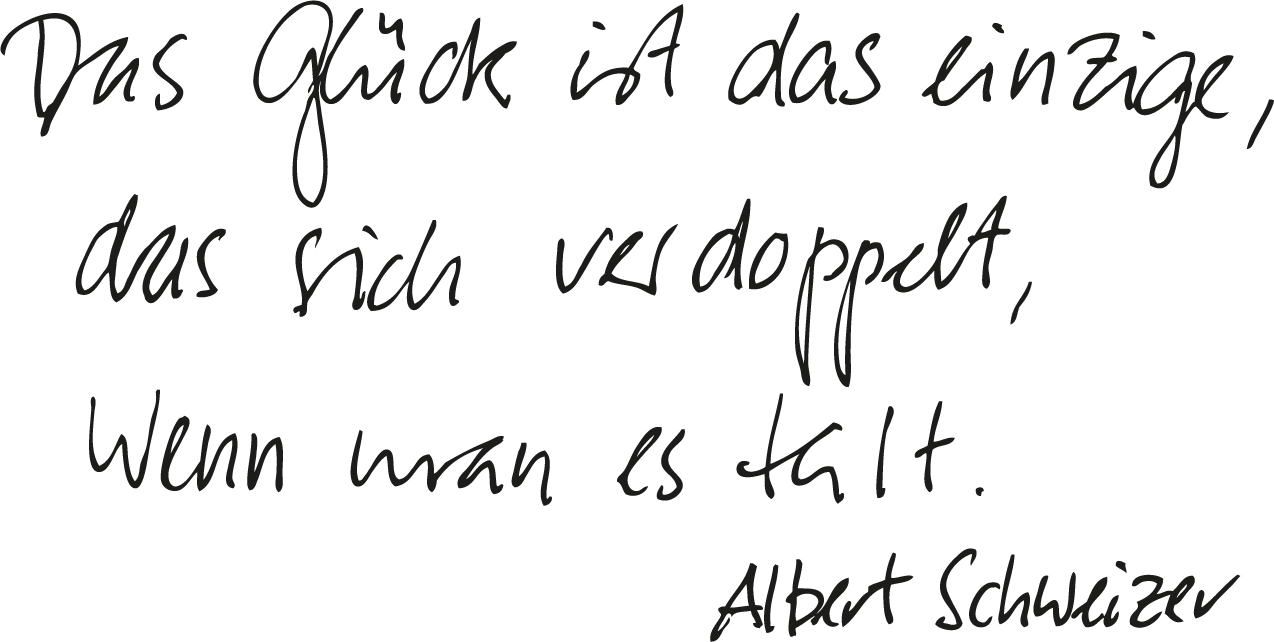 Das Glück ist das einzige,
das sich verdoppelt,
Wenn man es teilt.
Albert Schweizer